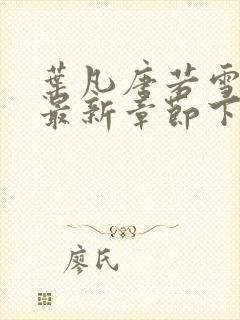 葉凡唐若雪
最新章節下
廖氏